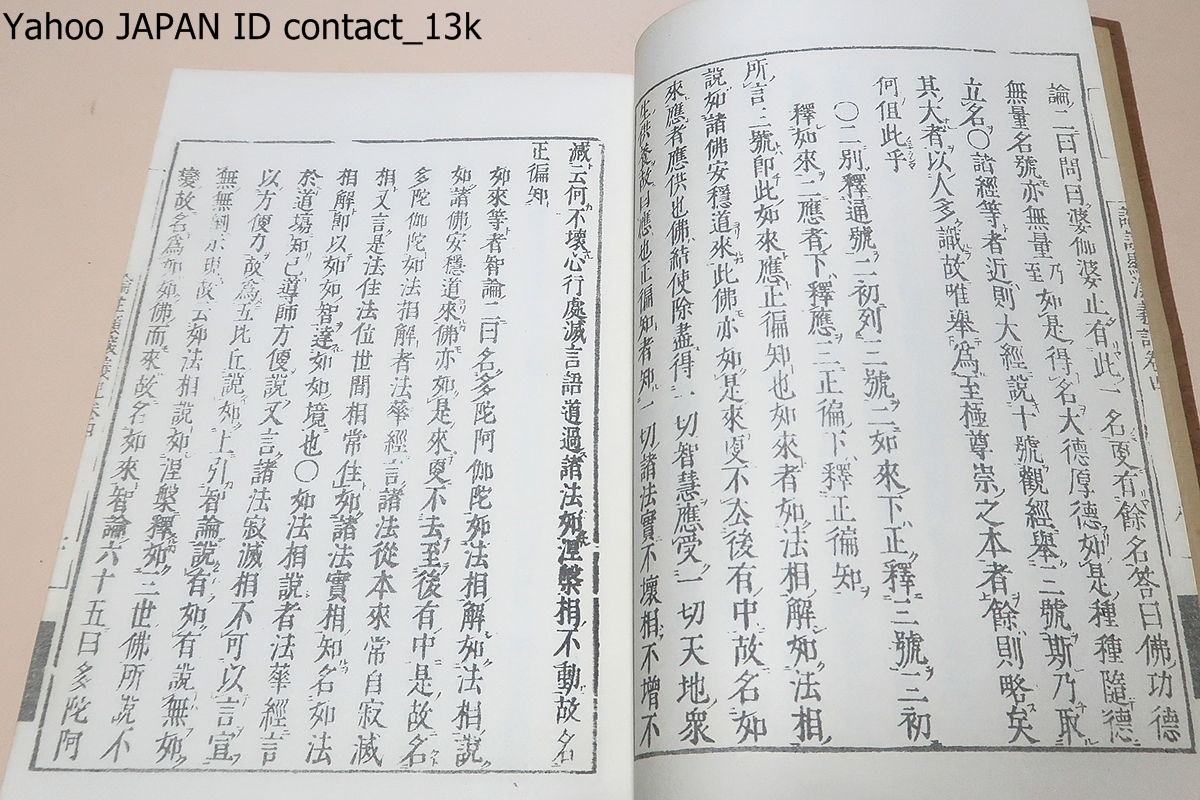 Yahoo JAPAN ID contact_13k
論二曰問曰婆伽婆止有此一名更有餘名答曰佛功德
無量名號亦無量至乃如是得名大德厚德如是種種隨德
立名○諸經等者近則大經說十號觀經舉三號斯乃取
其大者以人多識故唯舉爲至極尊崇之本者餘則略矣
何但此乎
○二別釋通號二初列三號二如來下正釋三號三初
釋如來二應者下釋應三正徧下釋正徧知
所言三號即此如來應正徧知也如來者如法相解如法相
說如諸佛安穩道來此佛亦如是來更不去後有中故名如
來應者應供也佛結使除盡得一切智慧應受一切天地衆
生供養故曰應也正徧知者知一切諸法實不壞相不增不
減云何不壞心行處滅言語道過諸法如涅槃相不動故名
正徧知
如來等者智論二曰名多陀阿伽陀如法相解如法相說
如諸佛安穩道來佛亦如是來更不去至後有中是故名
多陀阿伽陀如法相解者法華經言諸法從本來常自寂滅
相又言是法住法位世間相常住如諸法實相知名如法
相解即以如如智達如如境也○如法相說者法華經言
於道場知已導師方便說又言諸法寂滅相不可以言宣
以方便力故爲五比丘說如上引智論說有如有說無如
無無到示現故云如法相說如涅槃釋如三世佛所說不
變故名爲如如佛而來故名如來智論六十五曰多陀阿